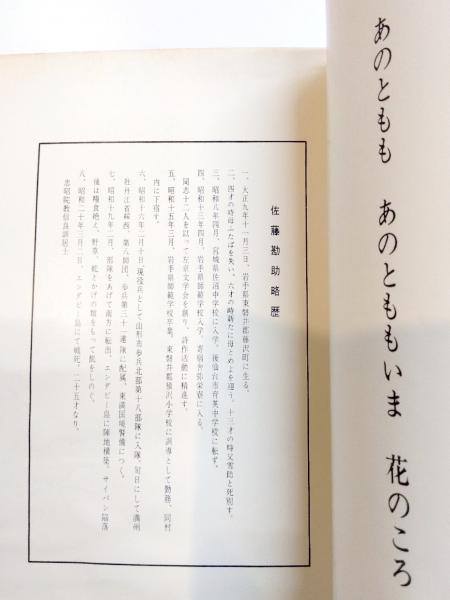 あのともも　あのとももいま　花のころ
佐藤勘助略歴
一、大正九年十一月三日、岩手県東磐井郡藤沢町に生る。
二、四才の時母ふたばを失い、六才の時新たに母とめよを迎う。十三才の時父雪助と死別す。
三、昭和八年四月、宮城県佐沼中学校に入学。後仙台市育英中学校に転ず。
四、昭和十三年四月、岩手県師範学校入学、寄宿舎弥栄寮に入る。
同志十二人を以って左京文学会を創り、詩作活動に精進す。
五、昭和十五年三月、岩手県師範学校卒業。東磐井郡猿沢小学校に訓導として勤務、同村
内に下宿す。
六、昭和十六年二月十日現役兵として山形市歩兵北部第十八部隊に入隊、旬日にして満州
牡丹江省綏西、第八師団、歩兵第三十一連隊に配属、東満国境警備につく。
七、昭和十九年二月、部隊をあげて南方に転出、エンダビー島に陣地構築。サイパン陥落
後は糧食絶え、野草、蛇とかげの類をもって飢をしのぐ。
八、昭和二十年三月二日、エンダビー島にて戦死。二十五才なり。
忠昭院教信良訓居士